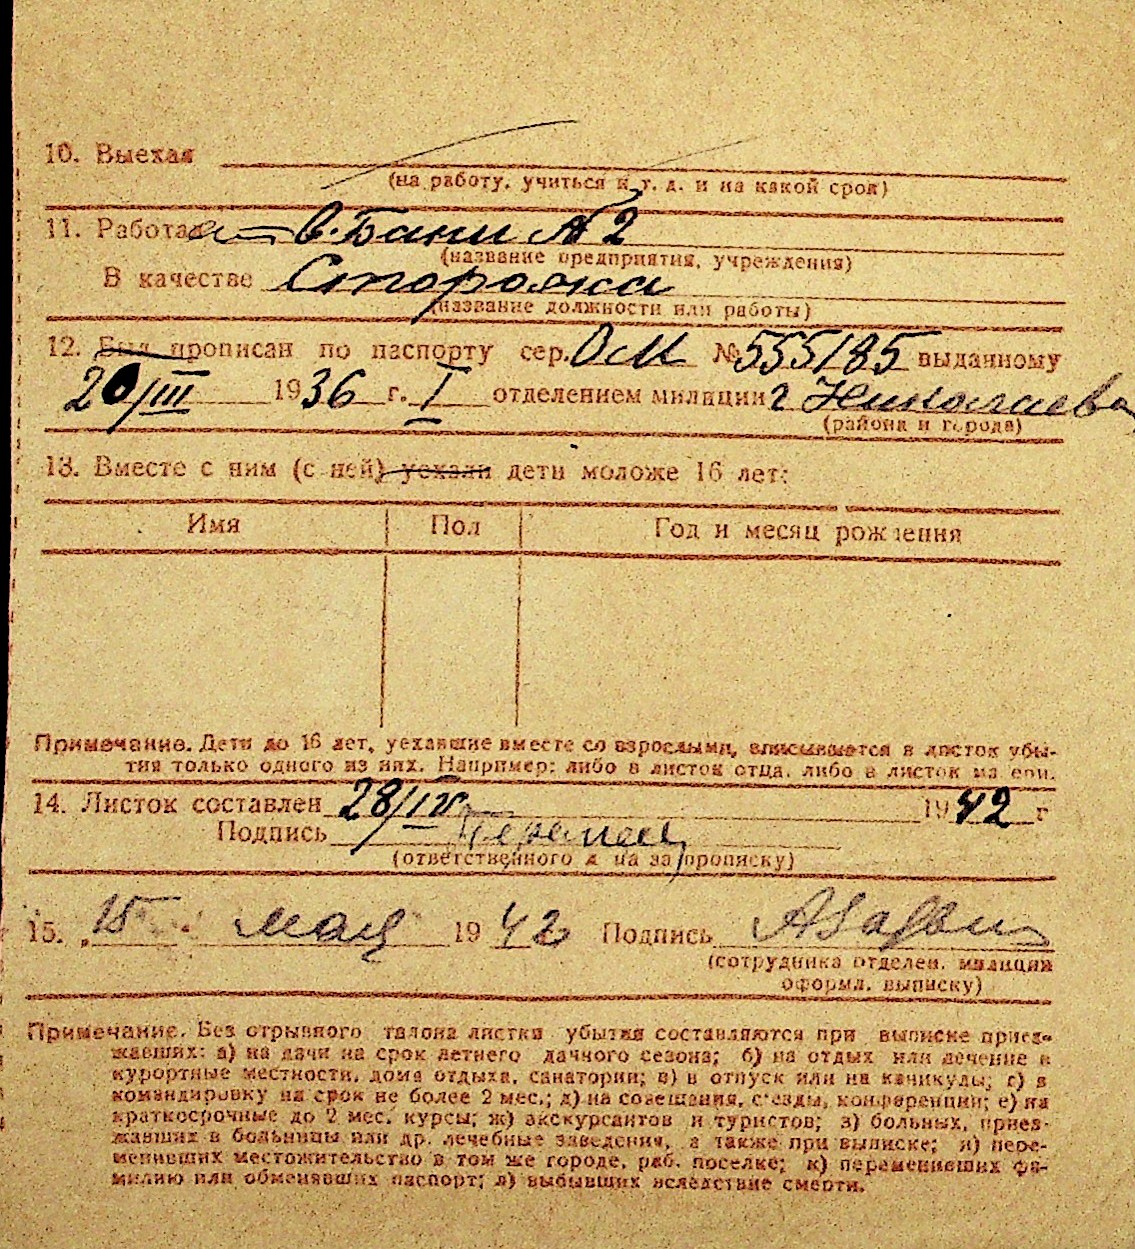 10. Выехал
(на работу, учиться и т. д. и на какой срок)
11. Работа в. Бани № 2
(название предприятия, учреждения)
В качестве Сторожа
(название должности или работы)
12. Был прописан по паспорту сер. ОМ № 555185 выданному
20/III 1936 г. I отделением милиции г Николаева
(района и города)
13. Вместе с ним (с ней) уехали дети моложе 16 лет:
Имя Пол Год и месяц рождения
Примечание. Дети до 16 лет, уехавшие вместе со взрослыми, вписываются в листок убы-
тия только одного из них. Например: либо в листок отца, либо в листок матери.
14. Листок составлен 28/IV 1942 г
Подпись
(ответственного л на за прописку)
15. „15 " мая 1942 Подпись
(сотрудника отделен. милиции
оформл. выписку)
Примечание. Без отрывного талона листки убытия составляются при выписке приез-
жавших: а) на дачи на срок летнего дачного сезона; б) на отдых или лечение в
курортные местности, дома отдыха, санатории; в) в отпуск или на каникулы; г) в
командировку на срок не более 2 мес.; д) на совещания, съезды, конференции; е) на
краткосрочные до 2 мес. курсы; ж) экскурсантов и туристов; з) больных, приез-
жавших в больницы или др. лечебные заведения, а также при выписке; и) пере-
менивших местожительство в том же городе, раб. поселке; к) переменивших фа-
милию или обменявших паспорт; л) выбывших вследствие смерти.